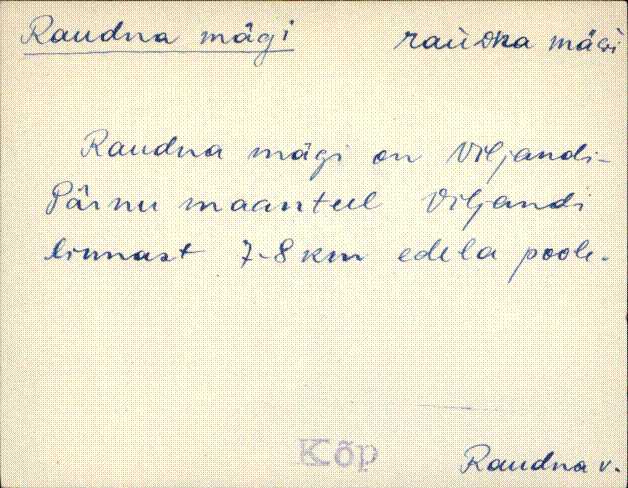 Raudna mägi
Raudna mägi on Viljandi-
Pärnu maanteel Viljandi
linnast 7-8 km edela poole.
Kõp
Raudna v.